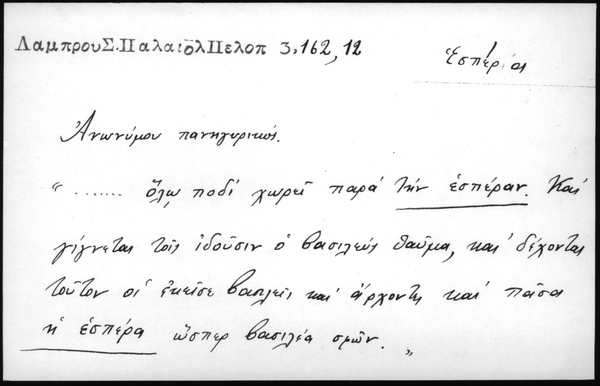 ΛαμπρουΣ.ΠαλαιολΠελοπ 3,162,12
Ἑσπέριοι
Ἀνωνύμου πανηγυρικός.
"....... ὅλῳ ποδί χωρεῖ παρά τήν ἑσπέραν. Καί
γίγνεται τοῖς ἰδοῦσιν ὁ βασιλεύς θαῦμα, καί δέχονται
τοῦτον οἱ ἐκεῖσε βασιλεῖς καί ἄρχοντες καί πᾶσα
ἡ ἑσπέρα ὥσπερ βασιλέα σφῶν. "